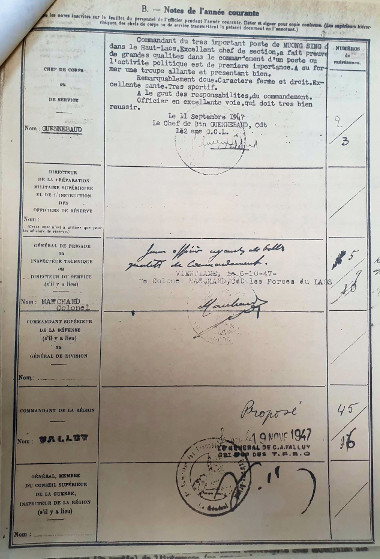 B. — Notes de l'année courante
CHEF DE CORPS
ou
DE SERVICE
Nom : GUENNEBAUD
Commandant du tres important poste de MUONG SING
dans le Haut-Laos. Excellent chef de section, a fait preuve
de grandes qualites dans le commandement d'un poste ou
l'activité politique est de premiere importance. A su for-
mer une troupe allante et presentant bien.
Remarquablement doue. Caractere ferme et droit. Ex-
cellente sante. Tres sportif.
A le gout des responsabilites, du commandement.
Officier en excellente voie, qui doit tres bien
reussir.
Le 11 Septembre 1947
Le Chef de Btn GUENNEBAUD, Cdt
NUMÉROS
3
DIRECTEUR
DE LA PRÉPARATION
MILITAIRE SUPÉRIEURE
ET DE L'INSTRUCTION
DES
OFFICIERS DE RÉSERVE
Nom :
GÉNÉRAL DE BRIGADE
ou
INSPECTEUR TECHNIQUE
ou
DIRECTEUR DU SERVICE
(s'il y a lieu)
Nom : MARCHAND
Colonel
Jeune officier ayant de belles
qualités de commandement.
VIENTIANE, le 6-10-47-
Le Colonel MARCHAND, Cdt les Forces du LAOS
5
COMMANDANT SUPÉRIEUR
DE LA DÉFENSE
(s'il y a lieu)
ou
GÉNÉRAL DE DIVISION
Nom :
COMMANDANT DE LA RÉGION
Nom : VALLUY
Proposé
19 NOV 1947
LE GENERAL DE C.A. VALLUY
45
16
GÉNÉRAL, MEMBRE
DU CONSEIL SUPÉRIEUR
DE LA GUERRE,
INSPECTEUR DE LA RÉGION
(s'il y a lieu)
Nom :